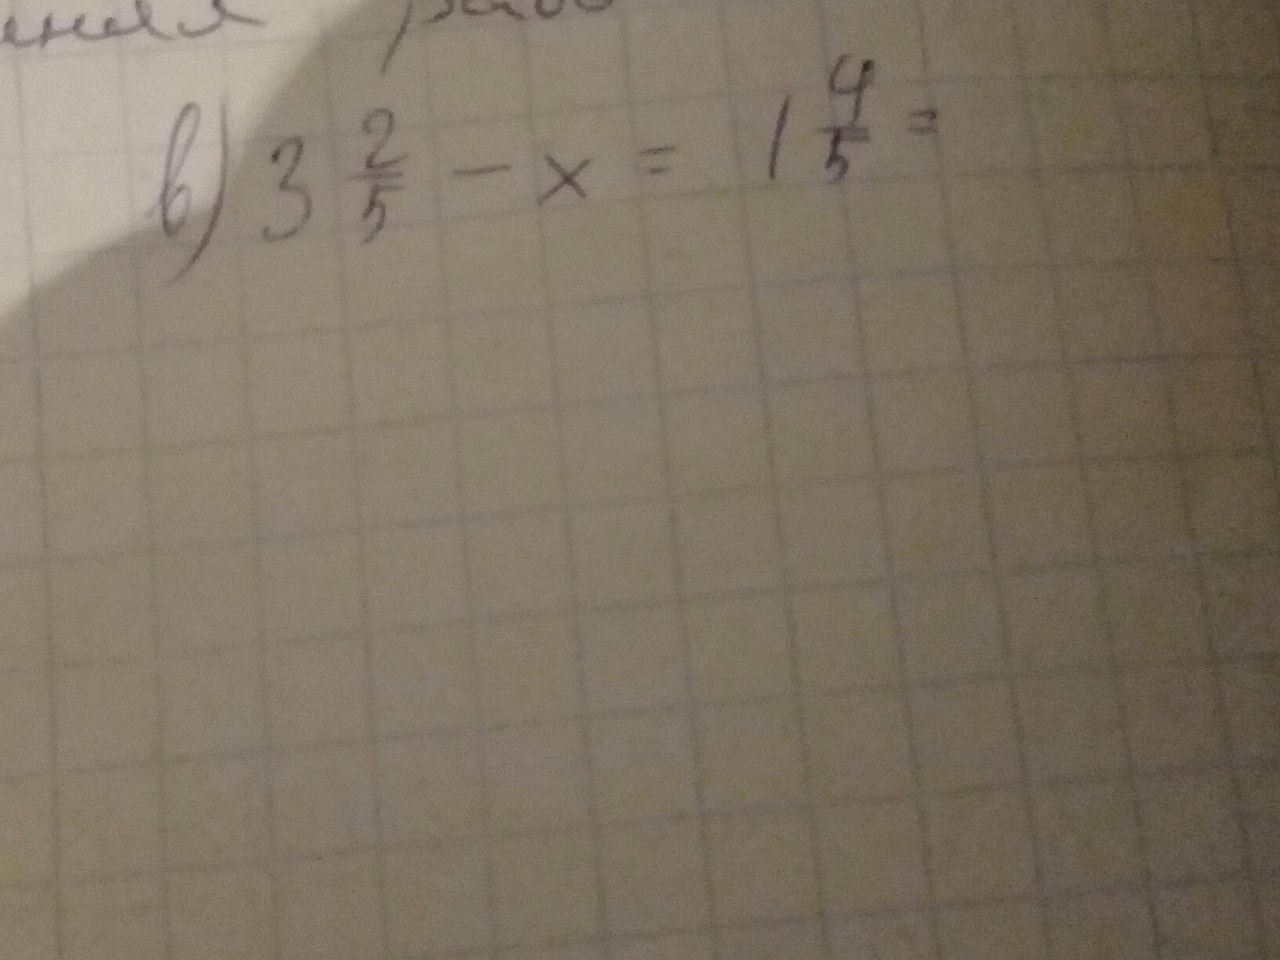 в) 3 2/5 - x = 1 4/5 =